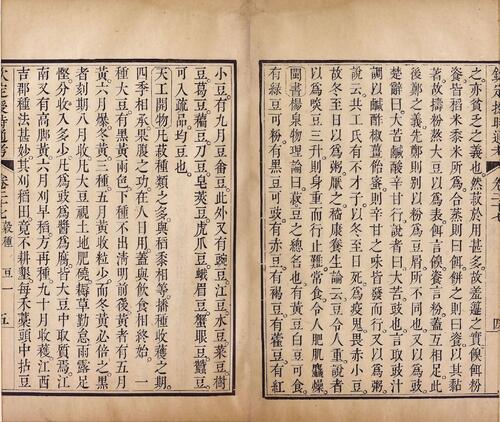 欽定授時通考 卷二十七 四
之亦貧乏之義也然菽於用甚多故羞籩之實餱餌粉
餈皆稻米黍米所為合蒸則曰餌餅之則曰餈以其黏
著故擣粉熬大豆以為表餌言餱餈言粉蓋互相足此
後鄭之義先鄭則別以粉為豆屑所不同也又以為粥
楚辭曰大苦鹹酸辛甘行說者曰大苦豉也言取豉汁
調以鹹酢椒薑飴蜜則辛甘之味皆發而行又以為粥
說云共工氏有不才子以冬至日死為疫鬼畏赤小豆
故冬至日以為粥厭之稽康養生論云豆令人重說者
以為啖豆三升則身重而行止難常食令人肥肌麤燥
閩書楊泉物理論曰菽豆之總名也有黃豆白豆可食
有綠豆可粉有黑豆可豉有
豆有虋豆有紅
小豆有九月豆畬豆此外又有豌豆江豆水豆萊豆樹
豆葛豆蘿豆刀豆皂莢豆虎爪豆蛾眉豆蟹眼豆蠶豆
可入蔬品均豆也
天工開物凡菽種類之多與稻黍相等播種收穫之期
四季相承果腹之功在人日用蓋與飲食相終始 一
種大豆有黑黃兩色下種不出清明前後黃者有五月
黃六月爆冬黃三種五月黃收粒少而冬黃必倍之黑
者刻期八月收凡大豆視土地肥磽耨草勤怠雨露足
慳分收入多少凡為豉為醬為腐皆大豆中取質焉江
南又有高腳黃六月刈早稻方再種九十月收穫江西
吉郡種法甚妙其刈稻田竟不耕墾每禾藁頭中拈豆
欽定授時通考 卷二十七 穀種 豆一 五